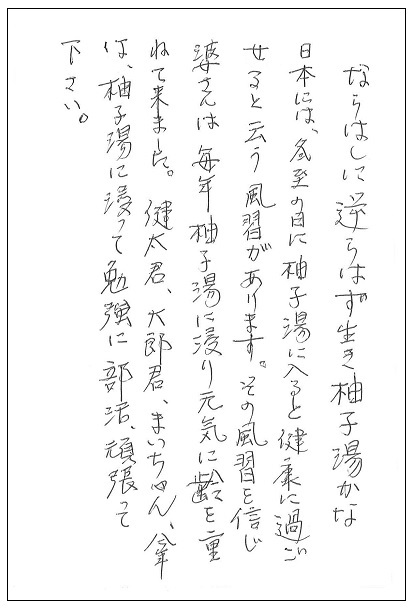 ならはしに逆らはず生き柚子湯かな
日本には、冬至の日に柚子湯に入ると健康に過ご
せると云う風習があります。その風習を信じ
婆さんは毎年柚子湯に浸り元気に齢を重
ねて来ました。健太君、大郎君、まいちゃん、今年
は、柚子湯に浸って勉強に部活、頑張って
下さい。